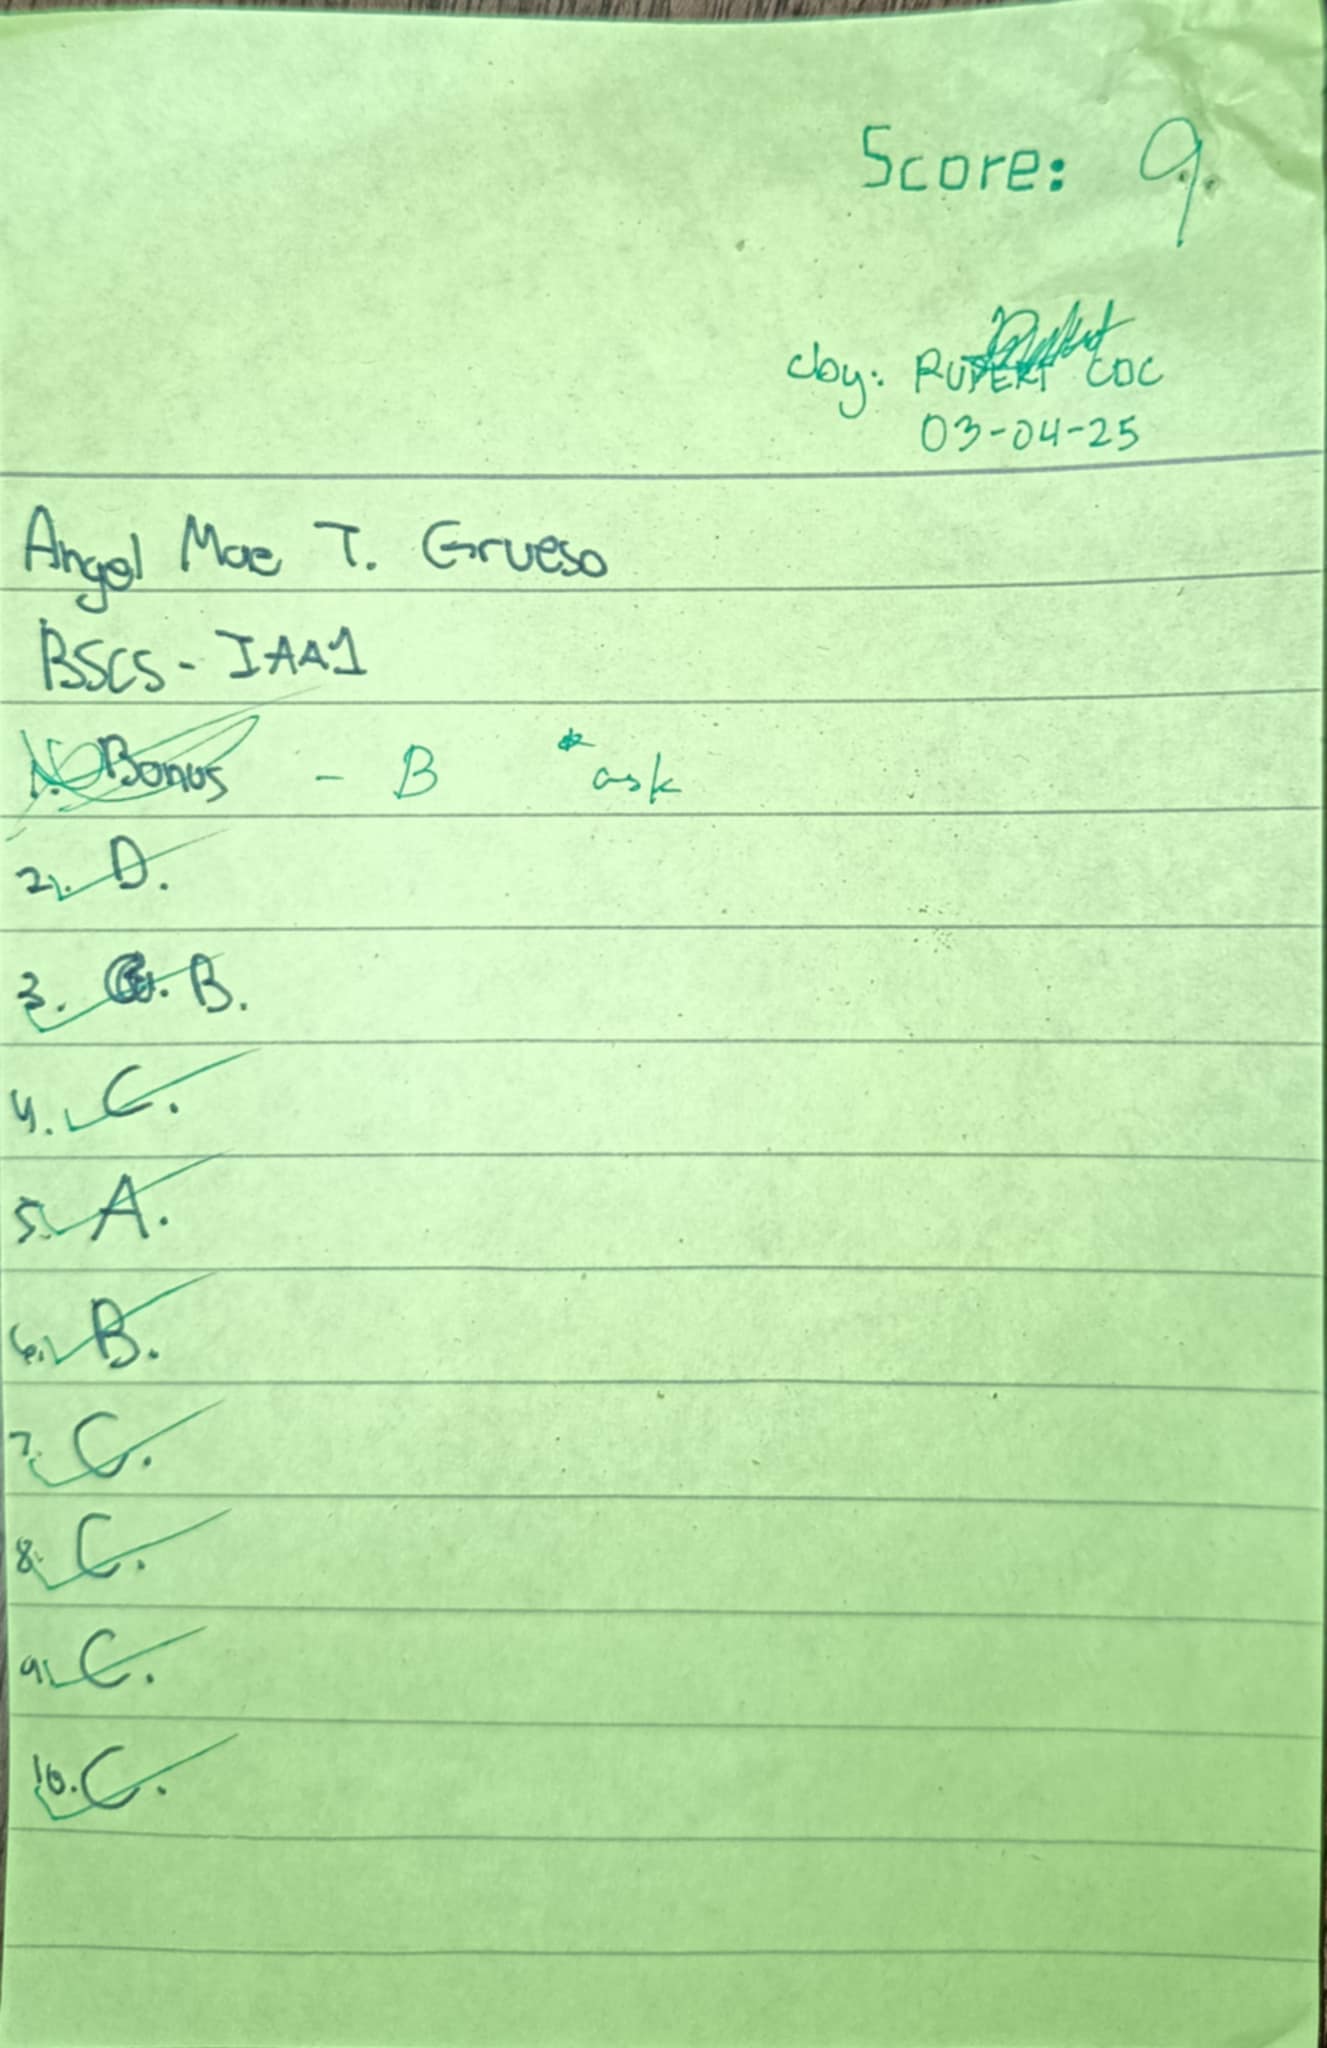 Score: 9
cby: RUPERT CDC
03-04-25
Angel Mae T. Grueso
BSCS - IAA1
1. Bonus - B *ask
2. D.
3. B.
4. C.
5. A.
6. B.
7. C.
8. C.
9. C.
10. C.